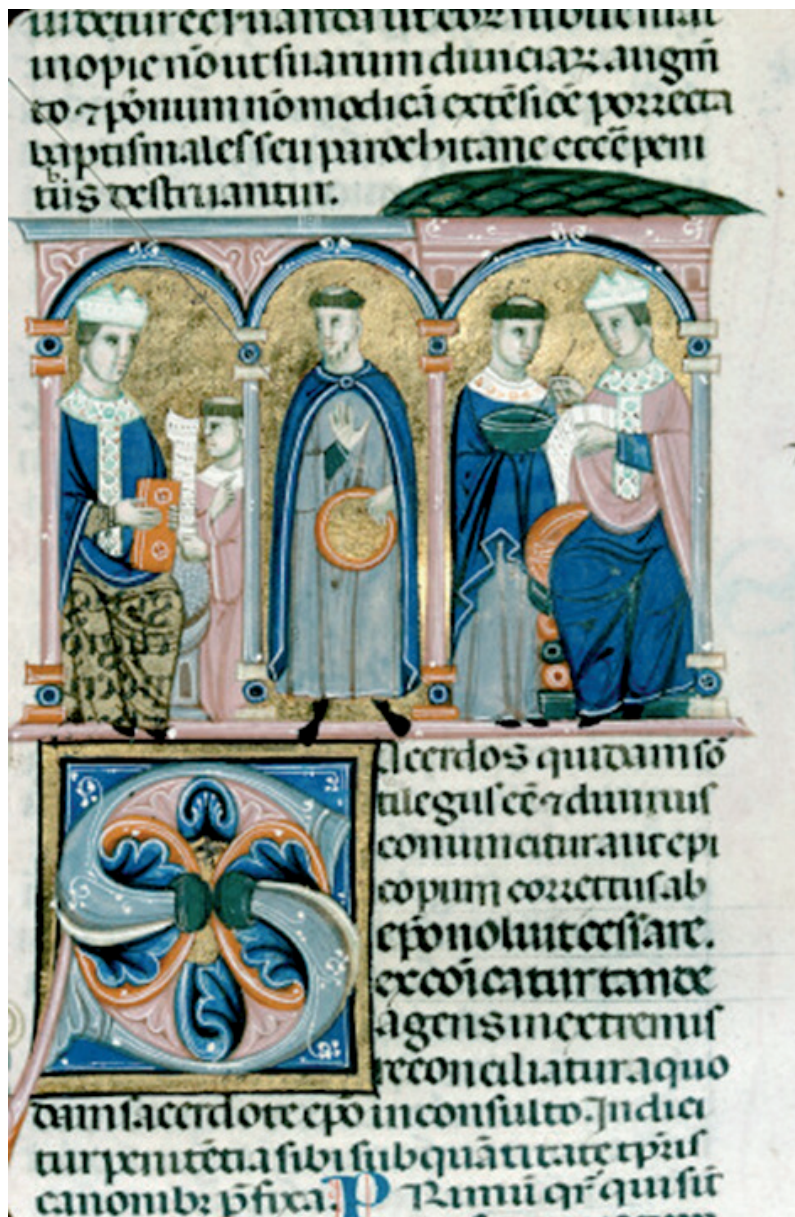 inopie nō ut suarum diuiciaꝝ augm̄
to ⁊ nō modicā extēsiōe porrecta
baptismales seu parochitane ecc̄e peni
tus destruantur.
Sacerdos quidam sor
tilegus eē ⁊ diuinus
conuincitur aut epi
copum correctus ab
ep̄o noluit cessare.
excōicatur tande
agens in extremis
reconciliatur a quo
dam sacerdote ep̄o inconsulto. Indici
tur penitētia sibi sub quātitate tp̄ris
canonibꝫ p̄fixa. Primū qr̄ qui sint